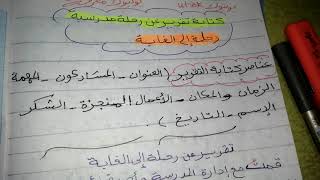 كتابة تقرير عن رحلة مدرسية
رحلة إلى الغابة
عناصر كتابة التقرير (العنوان - المشاركون - المهمة
الزمان والمكان - الأعمال المنجزة - الشكر
الإسم - التاريخ)
تقرير عن رحلة إلى الغابة
قمت مع إدارة المدرسة